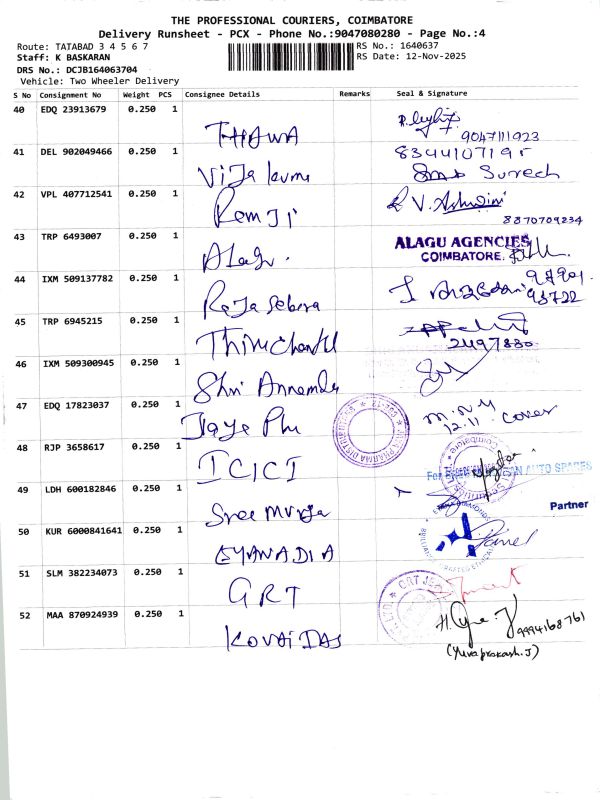 THE PROFESSIONAL COURIERS, COIMBATORE
Delivery Runsheet - PCX - Phone No.:9047080280 - Page No.:4
Route: TATABAD 3 4 5 6 7
RS No.: 1640637
Staff: K BASKARAN
RS Date: 12-Nov-2025
DRS No.: DCJB164063704
Vehicle: Two Wheeler Delivery
S No Consignment No Weight PCS Consignee Details Remarks Seal & Signature
40 EDQ 23913679 0.250 1
THAWA
9047111923
41 DEL 902049466 0.250 1
8344107195
Vijaya laxmi
Suresh
42 VPL 407712541 0.250 1
Ramji
R V. Ashwini
8870709234
43 TRP 6493007 0.250 1
Alagu.
ALAGU AGENCIES
COIMBATORE.
44 IXM 509137782 0.250 1
Raja
93722
45 TRP 6945215 0.250 1
46 IXM 509300945 0.250 1
Shri
47 EDQ 17823037 0.250 1
Jaya
12.11 Cover
48 RJP 3658617 0.250 1
ICICI
AUTO SPARES
49 LDH 600182846 0.250 1
Sree
Partner
50 KUR 6000841641 0.250 1
GYANADIA
51 SLM 382234073 0.250 1
GRT
52 MAA 870924939 0.250 1
KOVAI DAS
9994168761
(Yuvaprakash.J)